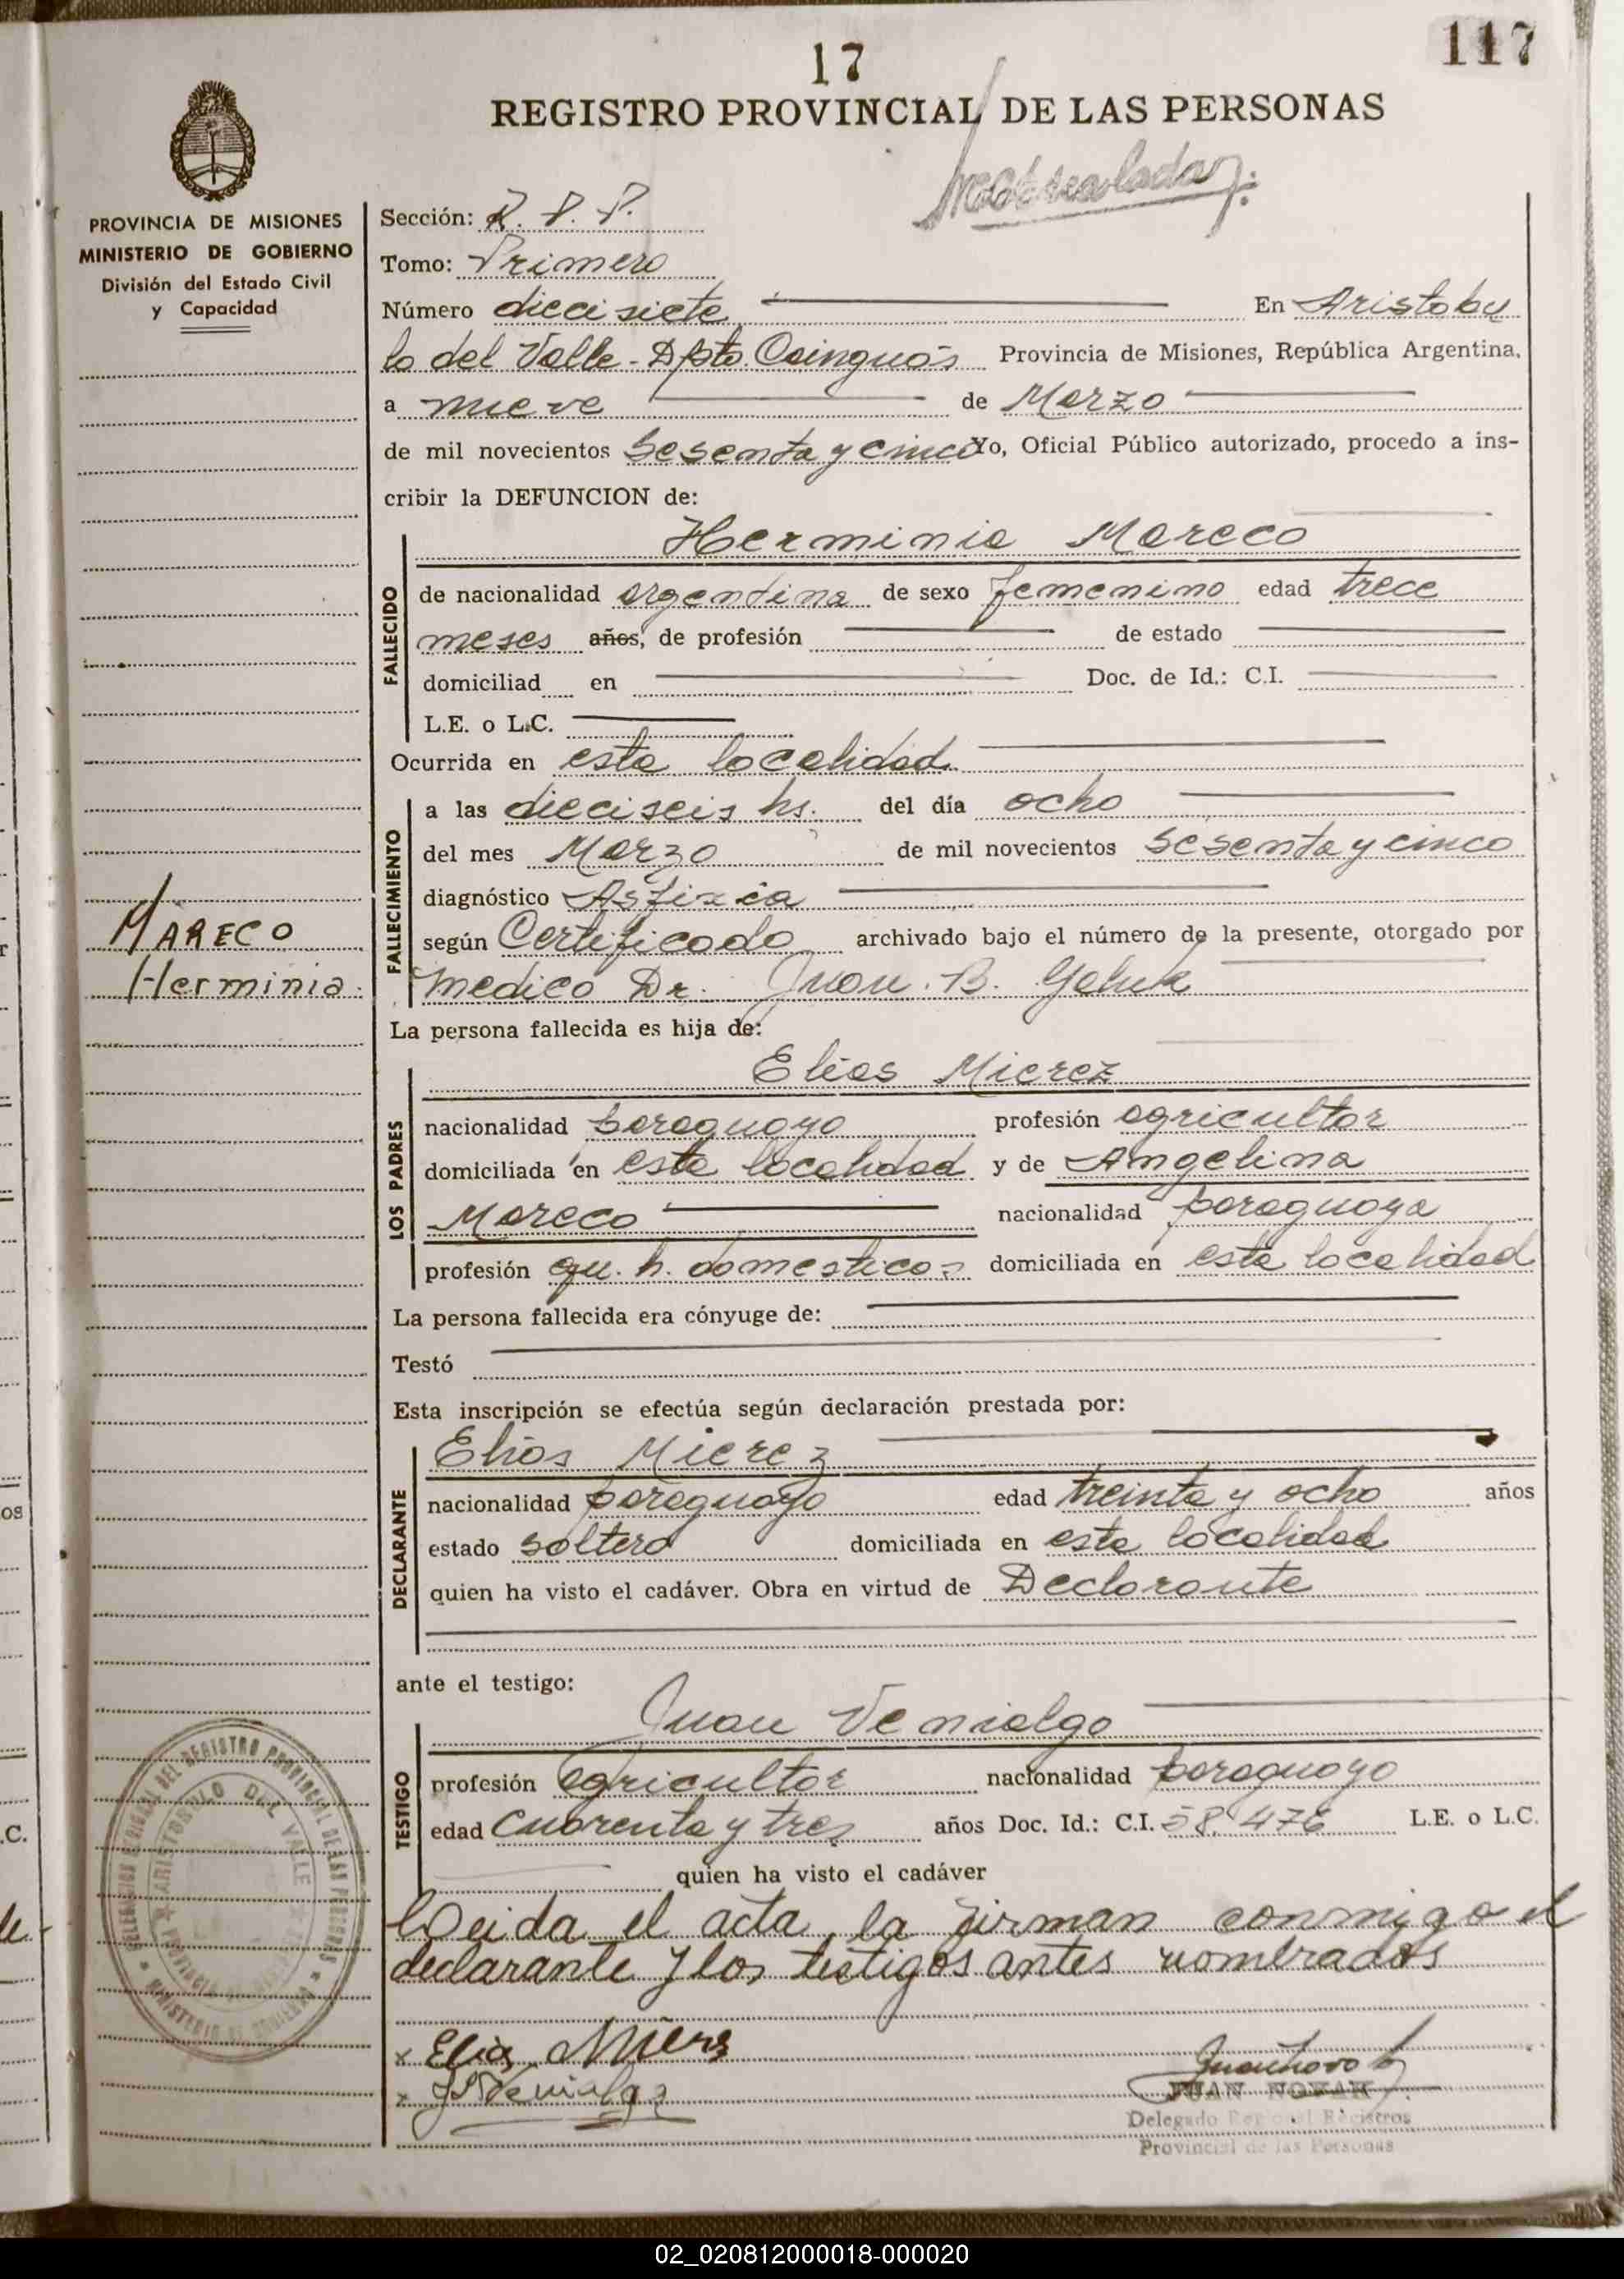 17
117
REGISTRO PROVINCIAL DE LAS PERSONAS
PROVINCIA DE MISIONES
MINISTERIO DE GOBIERNO
División del Estado Civil
y Capacidad
Sección: R. P. P.
Tomo: Primero
Número diecisiete En Aristobu
lo del Valle - Dpto. Cainguás Provincia de Misiones, República Argentina,
a nueve de Marzo
de mil novecientos sesenta y cinco Yo, Oficial Público autorizado, procedo a ins-
cribir la DEFUNCION de:
Herminia Mareco
FALLECIDO
de nacionalidad argentina de sexo femenino edad trece
meses años, de profesión de estado
domiciliad en Doc. de Id.: C.I.
L.E. o L.C.
Ocurrida en esta localidad
FALLECIMIENTO
a las dieciseis hs. del día ocho
del mes Marzo de mil novecientos sesenta y cinco
diagnóstico Asfixia
según Certificado archivado bajo el número de la presente, otorgado por
medico Dr. Juan B.
MARECO
Herminia
La persona fallecida es hija de:
Elias Mierez
LOS PADRES
nacionalidad paraguayo profesión agricultor
domiciliada en esta localidad y de Angelina
Mareco nacionalidad paraguaya
profesión qu. h. domesticos domiciliada en esta localidad
La persona fallecida era cónyuge de:
Testó
Esta inscripción se efectúa según declaración prestada por:
Elias Mierez
DECLARANTE
nacionalidad paraguayo edad treinta y ocho años
estado soltero domiciliada en esta localidad
quien ha visto el cadáver. Obra en virtud de Declarante
ante el testigo:
Juan Venialgo
TESTIGO
profesión agricultor nacionalidad paraguayo
edad cuarenta y tres años Doc. Id.: C.I. 58.476 L.E. o L.C.
quien ha visto el cadáver
Leida el acta, la firman conmigo el
declarante y los testigos antes nombrados
x Elias Mierz
x J Venialgo
JUAN NOVAK
Delegado Regional Registros
Provincial de las Personas
DELEGACION REGIONAL DEL REGISTRO PROVINCIAL DE LAS PERSONAS
ARISTOBULO DEL VALLE
MINISTERIO DE GOBIERNO
02_020812000018-000020